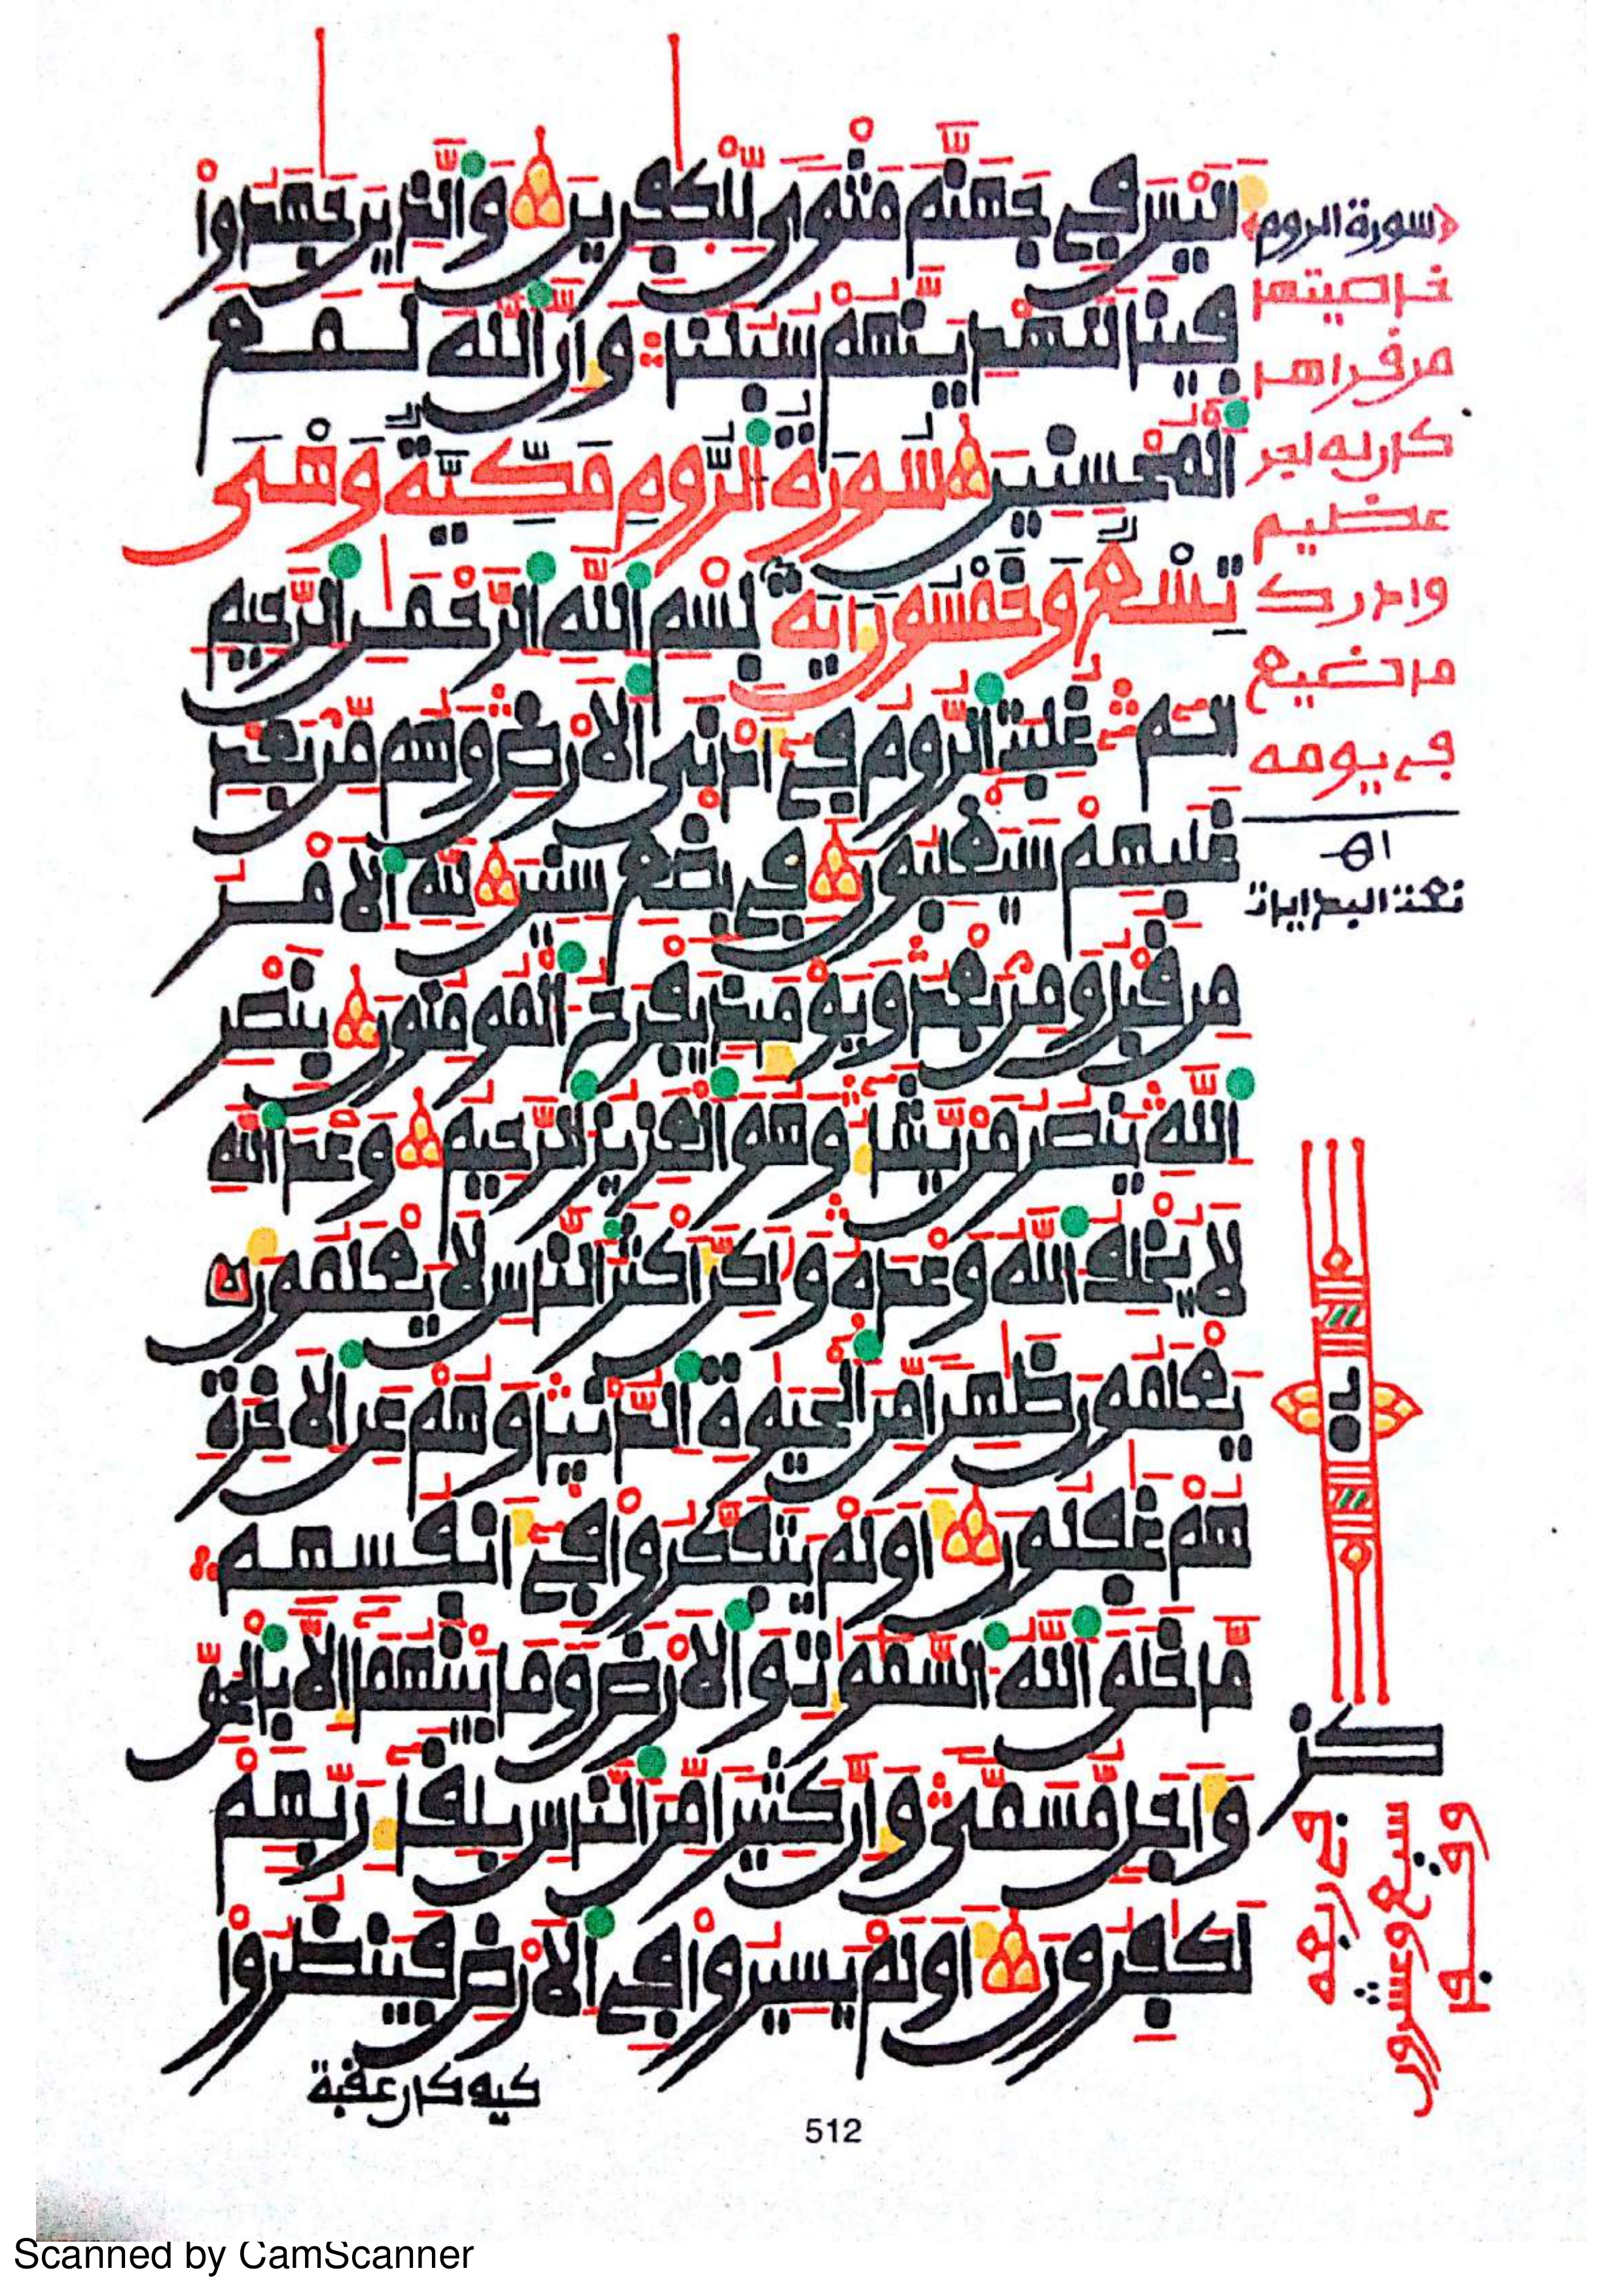 اَلَيْسَ فِي جَهَنَّمَ مَثْوًى لِّلْكٰفِرِينَ وَالَّذِينَ جٰهَدُواْ
فِينَا لَنَهْدِيَنَّهُمْ سُبُلَنَا وَإِنَّ اَللَّهَ لَمَعَ
اَلْمُحْسِنِينَ سُورَةُ اُلرُّومِ مَكِّيَّةٌ وَهْىَ
تِسْعٌ وَخَمْسُونَ ءَايَةً بِسْمِ اِللَّهِ اِلرَّحْمٰنِ اِلرَّحِيمِ
اَلَمِّ غُلِبَتِ اِلرُّومُ فِي أَدْنَى اَلَارْضِ وَهُم مِّنۢ بَعْدِ
غَلَبِهِمْ سَيَغْلِبُونَ فِي بِضْعِ سِنِينَ لِلهِ اِلَامْرُ
مِن قَبْلُ وَمِنۢ بَعْدُ وَيَوْمَئِذٍ يَفْرَحُ اُلْمُومِنُونَ بِنَصْرِ
اِللَّهِ يَنصُرُ مَنْ يَّشَآءُ وَهُوَ اَلْعَزِيزُ اُلرَّحِيمُ وَعْدَ اَللَّهِ
لَا يُخْلِفُ اُللَّهُ وَعْدَهُ وَلٰكِنَّ أَكْثَرَ اَلنَّاسِ لَا يَعْلَمُونَ
يَعْلَمُونَ ظٰهِرًا مِّنَ اَلْحَيَوٰةِ اِلدُّنْيَا وَهُمْ عَنِ اِلَاخِرَةِ
هُمْ غٰفِلُونَ أَوَلَمْ يَتَفَكَّرُواْ فِي أَنفُسِهِم
مَّا خَلَقَ اَللَّهُ اُلسَّمٰوٰتِ وَالَارْضَ وَمَا بَيْنَهُمَآ إِلَّا بِالْحَقِّ
وَأَجَلٍ مُّسَمًّى وَإِنَّ كَثِيرًا مِّنَ اَلنَّاسِ بِلِقَآءِ رَبِّهِمْ
لَكٰفِرُونَ أَوَلَمْ يَسِيرُواْ فِي اِلَارْضِ فَيَنظُرُواْ
كيف كان عقبة
سورة الروم
خاصيتها
من قراها
كان له اجر
عظيم
وادرك
ما ضيع
في يومه
اه
512
Scanned by CamScanner